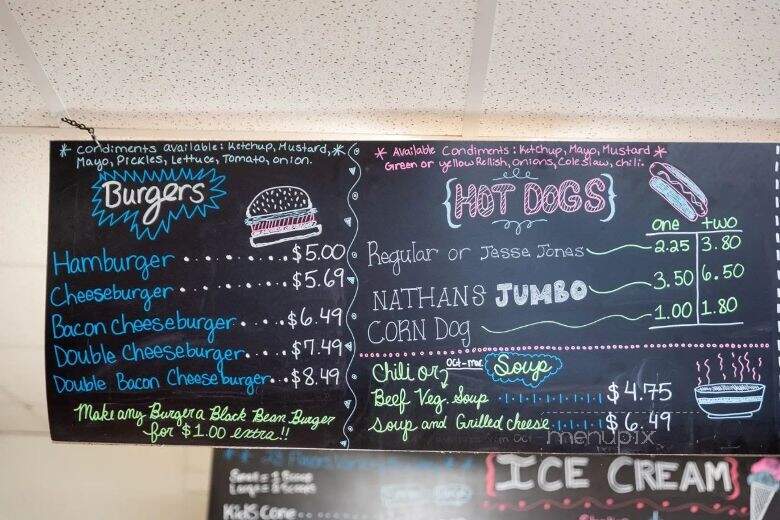 * Condiments available: Ketchup, Mustard, *
Mayo, Pickles, Lettuce, Tomato, onion.
Burgers
Hamburger ...... $5.00
Cheeseburger ...... $5.69
Bacon Cheeseburger .... $6.49
Double Cheeseburger .... $7.49
Double Bacon Cheeseburger... $8.49
Make any Burger a Black Bean Burger
for $1.00 extra!!
* Available Condiments: Ketchup, Mayo, Mustard *
Green or yellow Relish, onions, Coleslaw, chili.
{HOT DOGS}
one two
Regular or Jesse Jones 2.25 3.80
NATHANS JUMBO 3.50 6.50
CORN Dog 1.00 1.80
Oct-mar Soup
Chili or
Beef Veg. Soup $4.75
Soup and Grilled cheese $6.49
menupix
ICE CREAM
Kids Cone